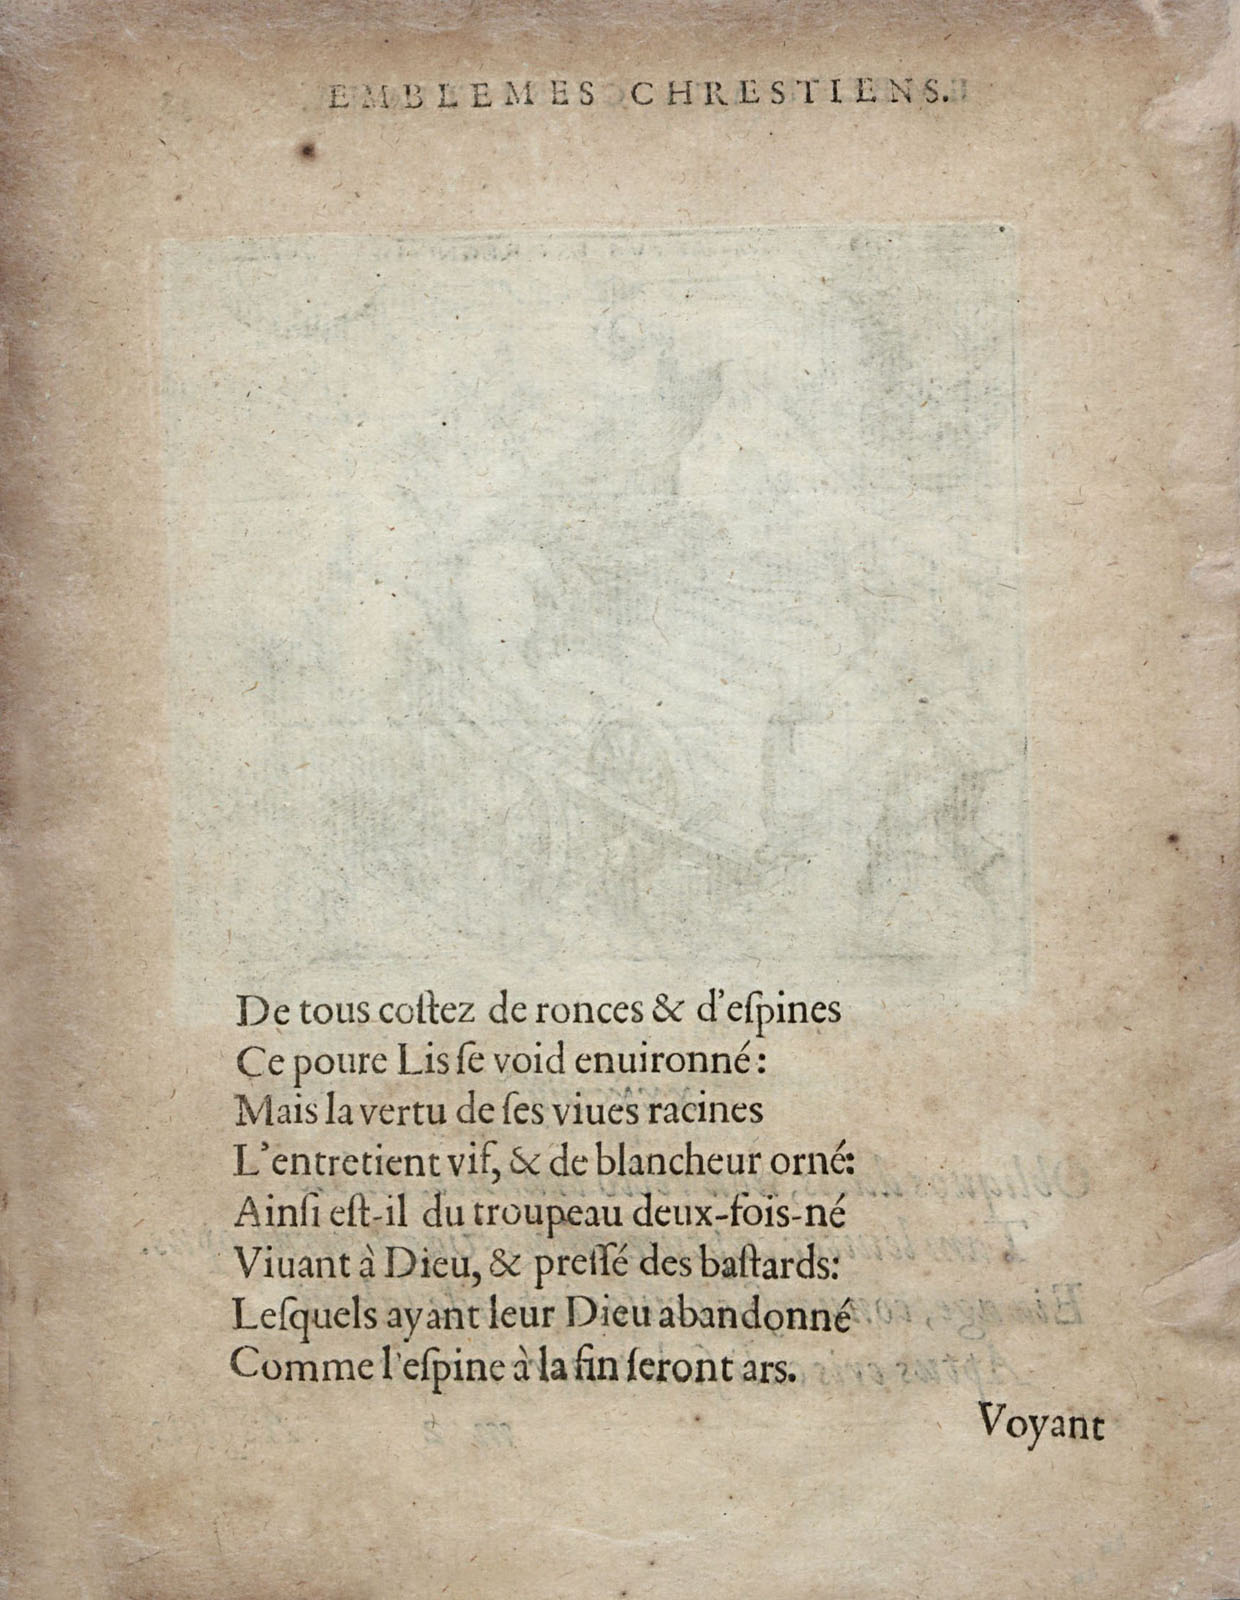 EMBLEMES CHRESTIENS.
De tous coſtez de ronces & d'eſpines
Ce poure Lis ſe void enuironné:
Mais la vertu de ſes viues racines
L'entretient vif, & de blancheur orné:
Ainſi eſt-il du troupeau deux-fois-né
Viuant à Dieu, & preſſé des baſtards:
Leſquels ayant leur Dieu abandonné
Comme l'eſpine à la fin ſeront ars.
Voyant